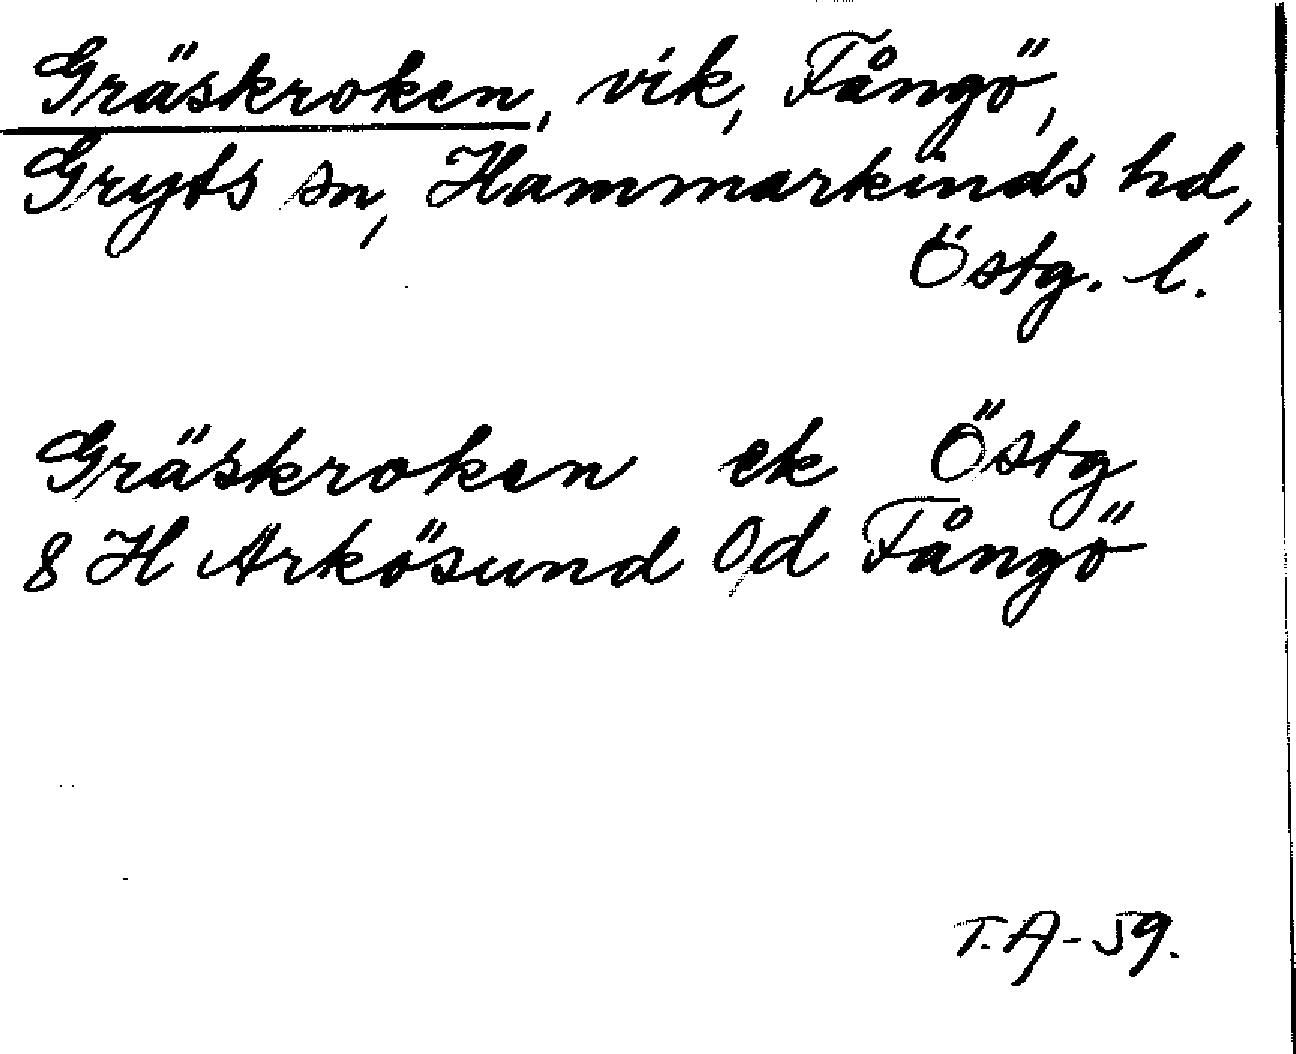 Gräskroken, vik, Fångö,
Gryts sn, Hammarkinds hd,
Östg. l.
Gräskroken ek Östg
8 H Arkösund 0d Fångö
T. A-59.